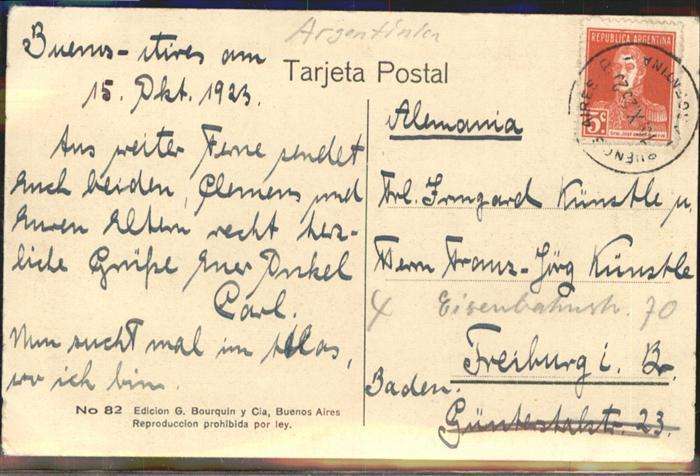 Argentinien
Buenos-Aires am
15. Okt. 1923.
Aus weiter Ferne sendet
Euch beiden, Clemens und
Euren Eltern recht herz-
liche Grüße Euer Onkel
Carl.
Nun sucht mal im Atlas,
wo ich bin.
No 82 Edicion G. Bourquin y Cia, Buenos Aires
Reproduccion prohibida por ley.
Tarjeta Postal
REPUBLICA ARGENTINA
5c
BUENOS AIRES
ARGENTINA
Alemania
Frl. Irmgard Künstle u
Herrn Franz-Jörg Künstle
Eisenbahnstr. 70
Freiburg i. Br.
Baden.
Günterstalstr. 23.